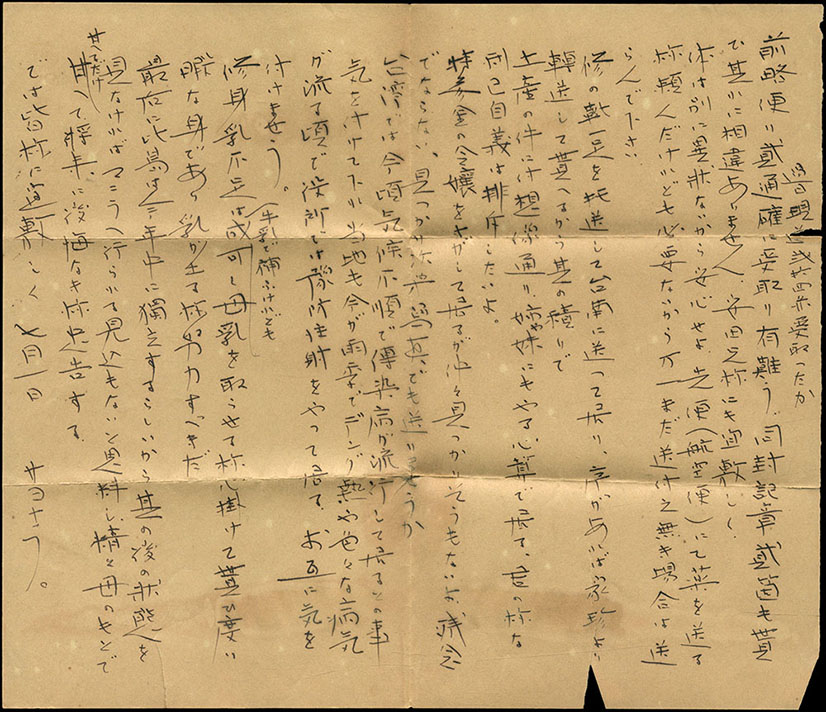 前略便り貳通確に受取り有難う、同封記章貳箇も貰
ひ其れに相違ありません、安田之にも宜敷しく
体は別に異狀ないから安心せよ、先便(航空便)にて薬を送る
様頼んだけれども必要ないから万一まだ送付之無き場合は送
らんで下さい、
修の靴一足を托送して台南に送って居り、序があれば
轉送して貰へるから其の積りで
土産の件は想像通り姉妹にもやる心算で居る、君の様な
利己自義は排斥したいよ。
持参金の令嬢をサガして居るが仲々見つかりそうもないよ、残念
でならない、見つかれば写真でも送りませうか
台湾では今頃気候不順で傳染病が流行して居るとの事
気を付けて下さい 当地も今が雨季でデング熱や色々な病気
が流る頃で役所では豫防注射をやって居る、お互に気を
付けませう。
(牛乳で補ふけれども
修身乳不足は成可く母乳を取らせる様心掛けて貰ひ度い
暇な身であり乳が出る様努力すべきだ
最后に比島は今年中に獨立するらしいから其の後の狀態を
見なければマこうへ行られる見込もないと思料し精々母のキンで
甘へるだけ
甘へて将来に後悔なき様忠告する
では皆様に宜敷しく 七月一日 サヨナラ。